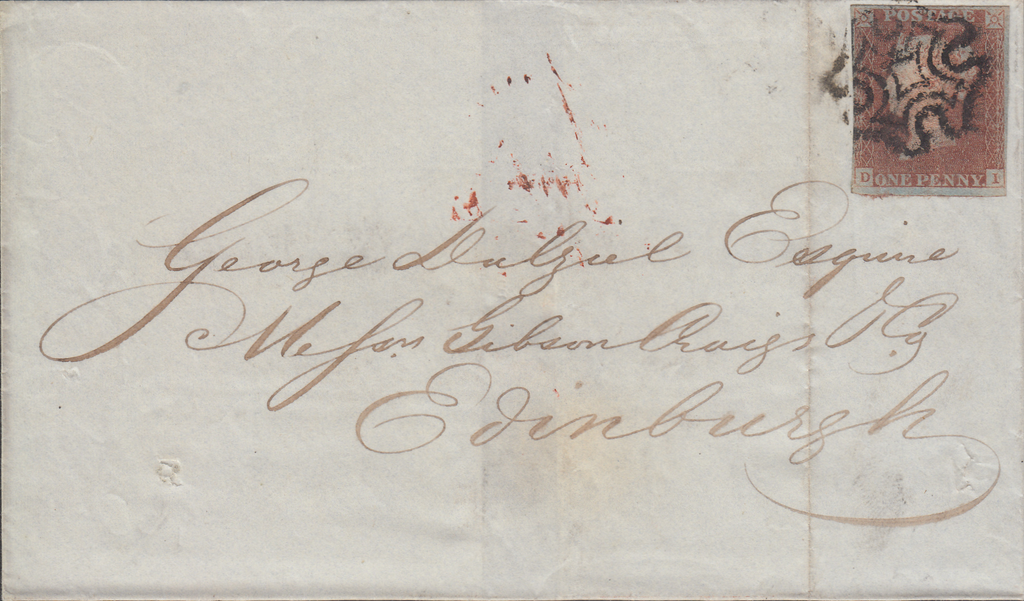 POSTAGE
D ONE PENNY. I
George Dalziel Esquire
Messrs Gibson Craigs & Cy
Edinburgh